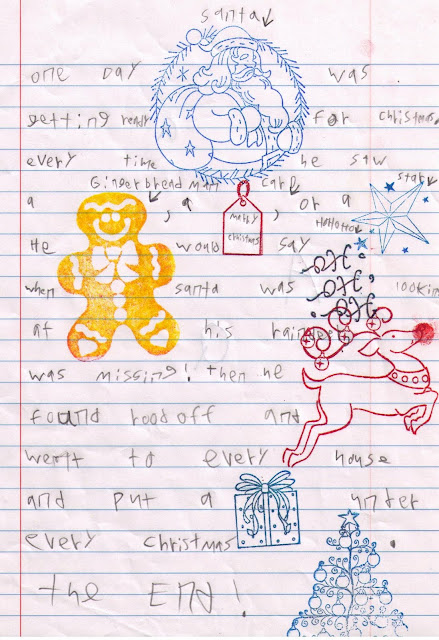 santa
one Day was
getting ready for christmas.
every time he saw
Gingerbread man card star
a , a , or a
merry christmas
HoHoHo
He would say
Ho, Ho, Ho,
when santa was lookin
at his raindeer
was missing! then he
found roodoff and
went to every house
and put a unter
every christmas .
the End!